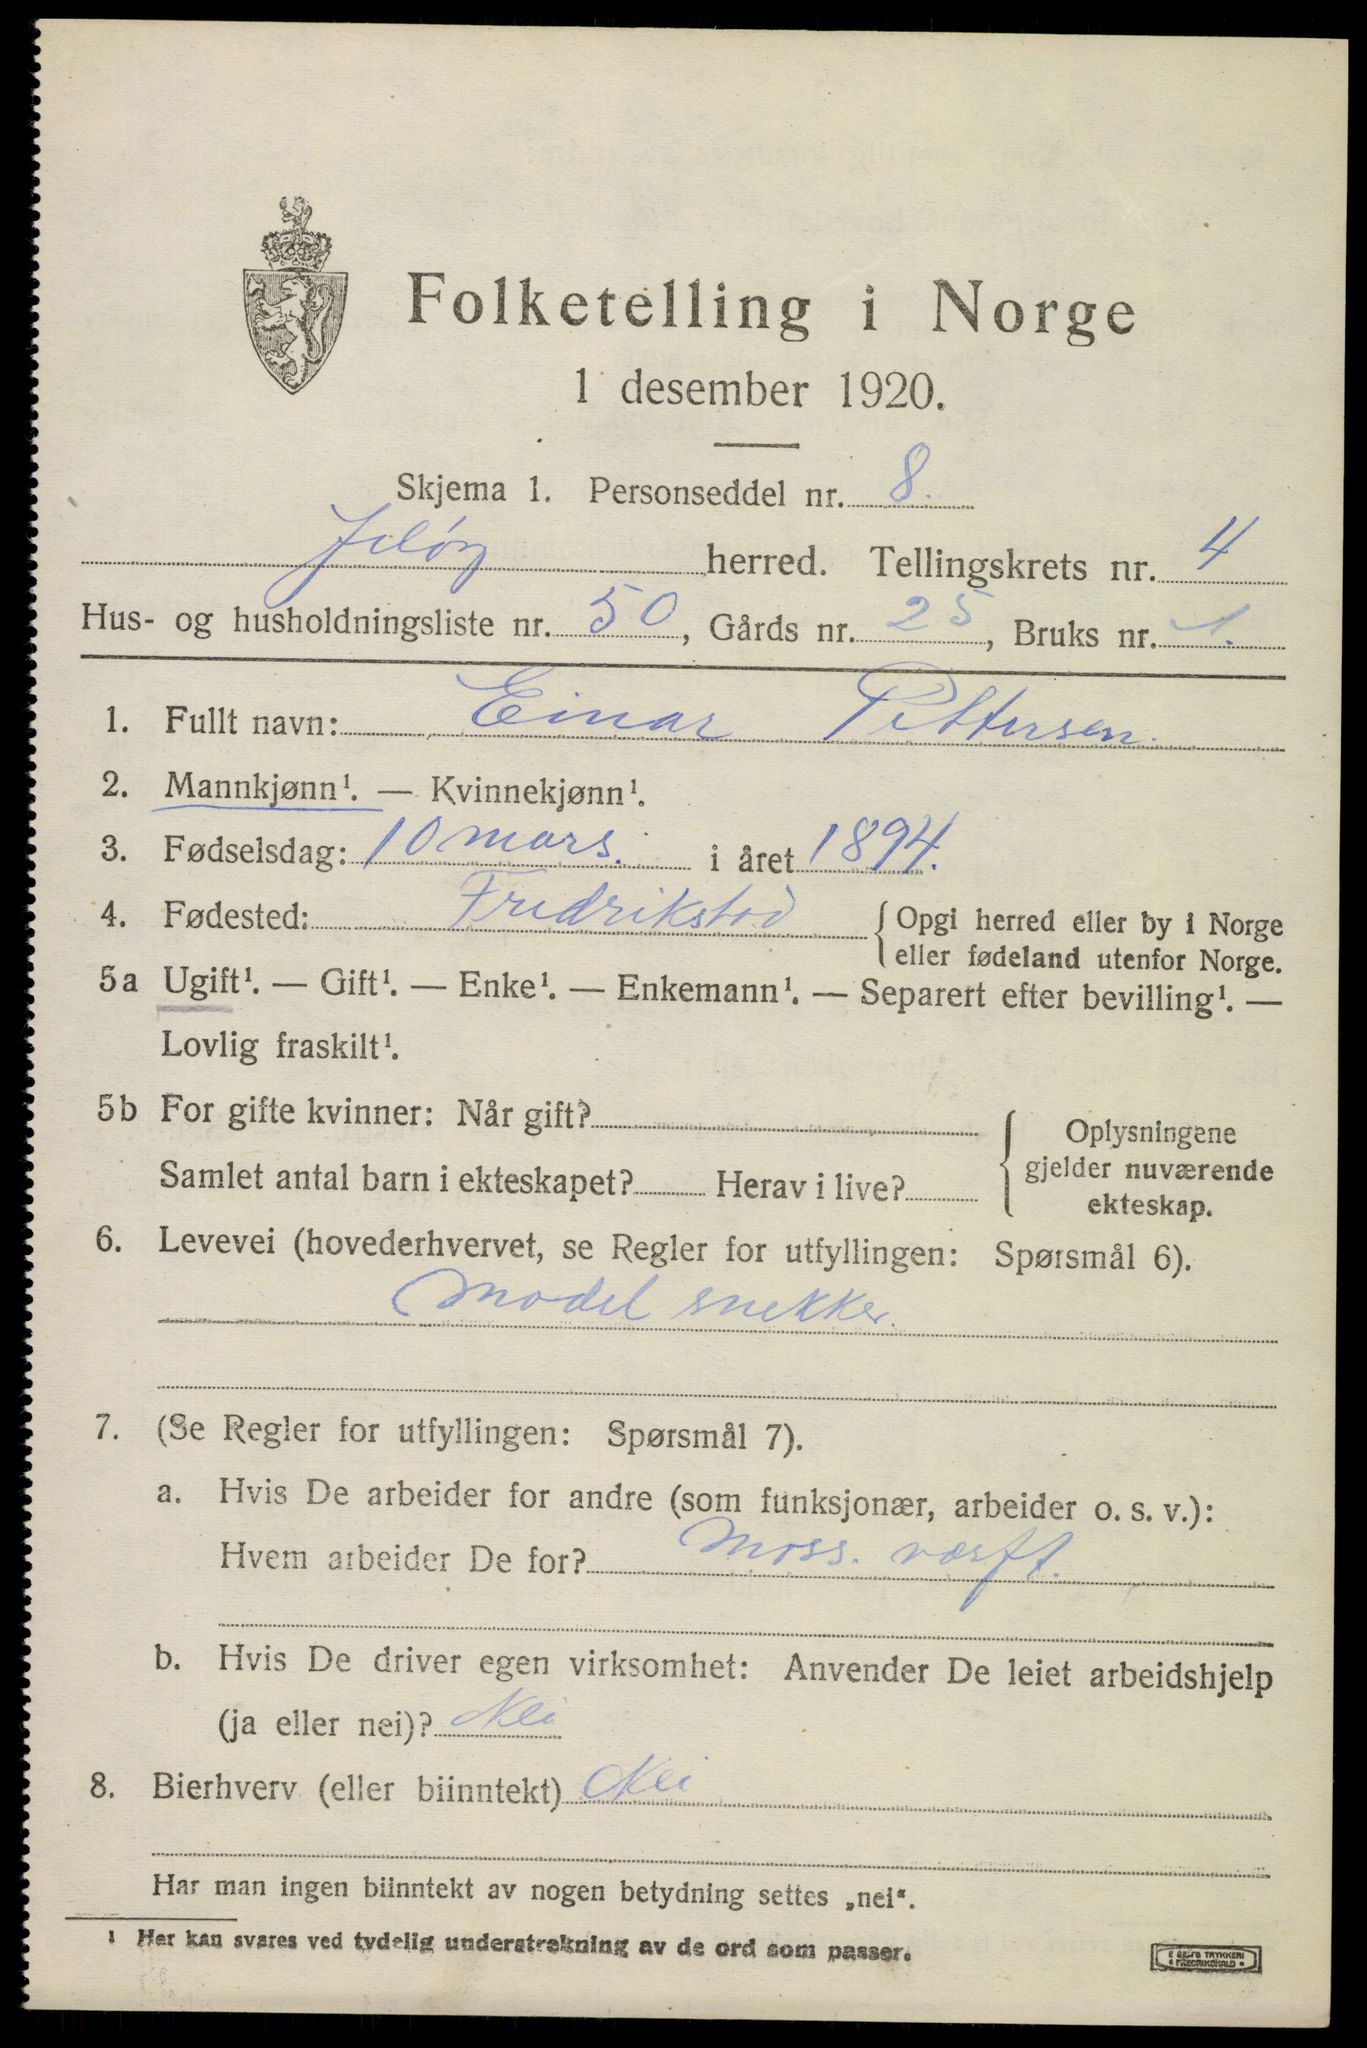 Folketelling i Norge
1 desember 1920.
Skjema 1. Personseddel nr. 8.
Jeløy herred. Tellingskrets nr. 4
Hus- og husholdningsliste nr. 50, Gårds nr. 25, Bruks nr. 1.
1. Fullt navn: Einar Pettersen.
2. Mannkjønn¹. — Kvinnekjønn¹.
3. Fødselsdag: 10 mars. i året 1894.
4. Fødested: Fredrikstad { Opgi herred eller by i Norge
eller fødeland utenfor Norge.
5a Ugift¹. — Gift¹. — Enke¹. — Enkemann¹. — Separert efter bevilling¹. —
Lovlig fraskilt¹.
5b For gifte kvinner: Når gift? { Oplysningene
gjelder nuværende
Samlet antal barn i ekteskapet? Herav i live?
ekteskap.
6. Levevei (hovederhvervet, se Regler for utfyllingen: Spørsmål 6).
Model snekker.
7. (Se Regler for utfyllingen: Spørsmål 7).
a. Hvis De arbeider for andre (som funksjonær, arbeider o. s. v.):
Hvem arbeider De for? Moss. værft.
b. Hvis De driver egen virksomhet: Anvender De leiet arbeidshjelp
(ja eller nei)? Nei
8. Bierhverv (eller biinntekt) Nei
Har man ingen biinntekt av nogen betydning settes „nei“.
1 Her kan svares ved tydelig understrekning av de ord som passer.
E SEMS TRYKKERI
FREDRIKSHALD